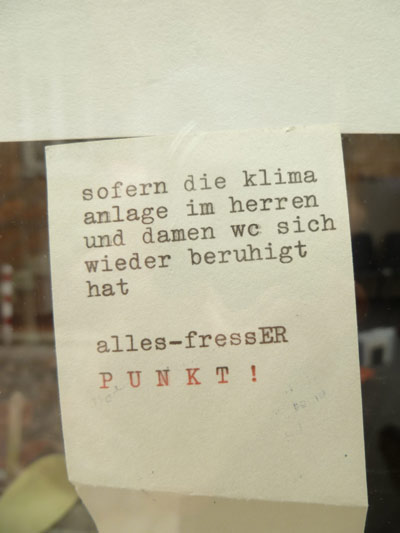 sofern die klima
anlage im herren
und damen wc sich
wieder beruhigt
hat
alles-fressER
PUNKT!